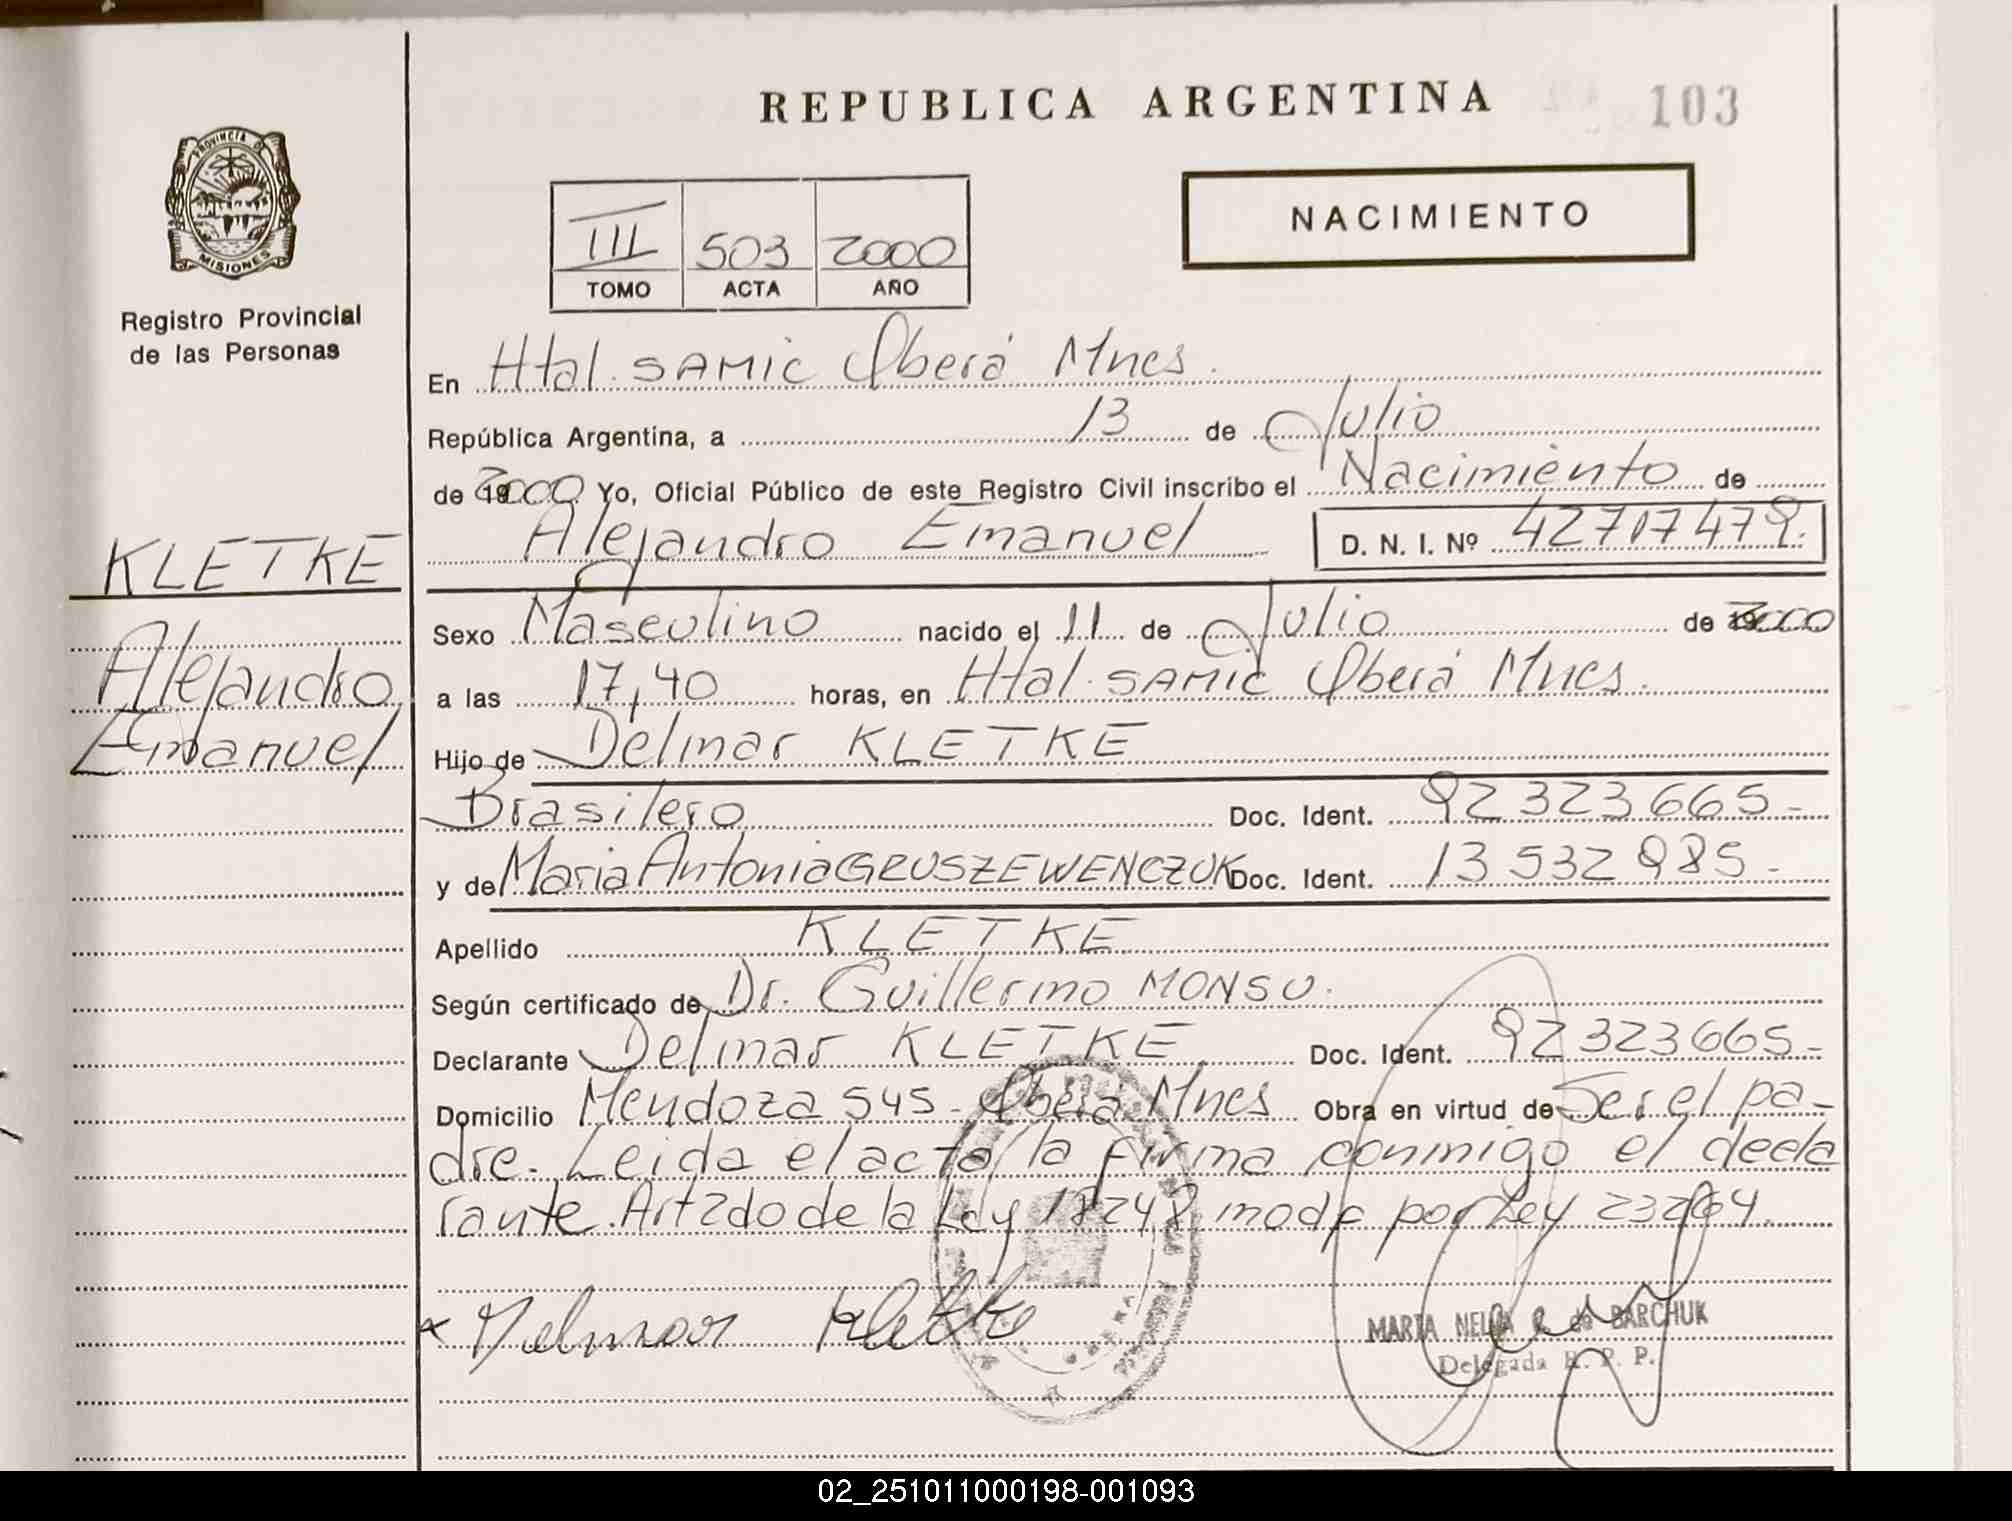 REPUBLICA ARGENTINA
103
PROVINCIA DE
MISIONES
Registro Provincial
de las Personas
NACIMIENTO
III 503 2000
TOMO ACTA AÑO
En Htal. SAMIC Oberá Mnes.
República Argentina, a 13 de Julio
de 2000 Yo, Oficial Público de este Registro Civil inscribo el Nacimiento de
Alejandro Emanuel D. N. I. Nº 42717479.
KLETKE
Alejandro
Emanuel
Sexo Masculino nacido el 11 de Julio de 2000
a las 17,40 horas, en Htal. SAMIC Oberá Mnes.
Hijo de Delmar KLETKE
Brasilero Doc. Ident. 92323665-
y de Maria Antonia GRUSZEWENCZUK Doc. Ident. 13532985-
Apellido KLETKE
Según certificado de Dr. Guillermo MONSU.
Declarante Delmar KLETKE Doc. Ident. 92323665-
Domicilio Mendoza 545- Oberá Mnes Obra en virtud de Ser el pa-
dre. Leida el acta la firma conmigo el decla
rante. Art 2do de la Ley 18248 modf por Ley 23264.
x Delmar Kletke
MARIA NELIA R. de BARCHUK
Delegada R. P. P.
02_251011000198-001093